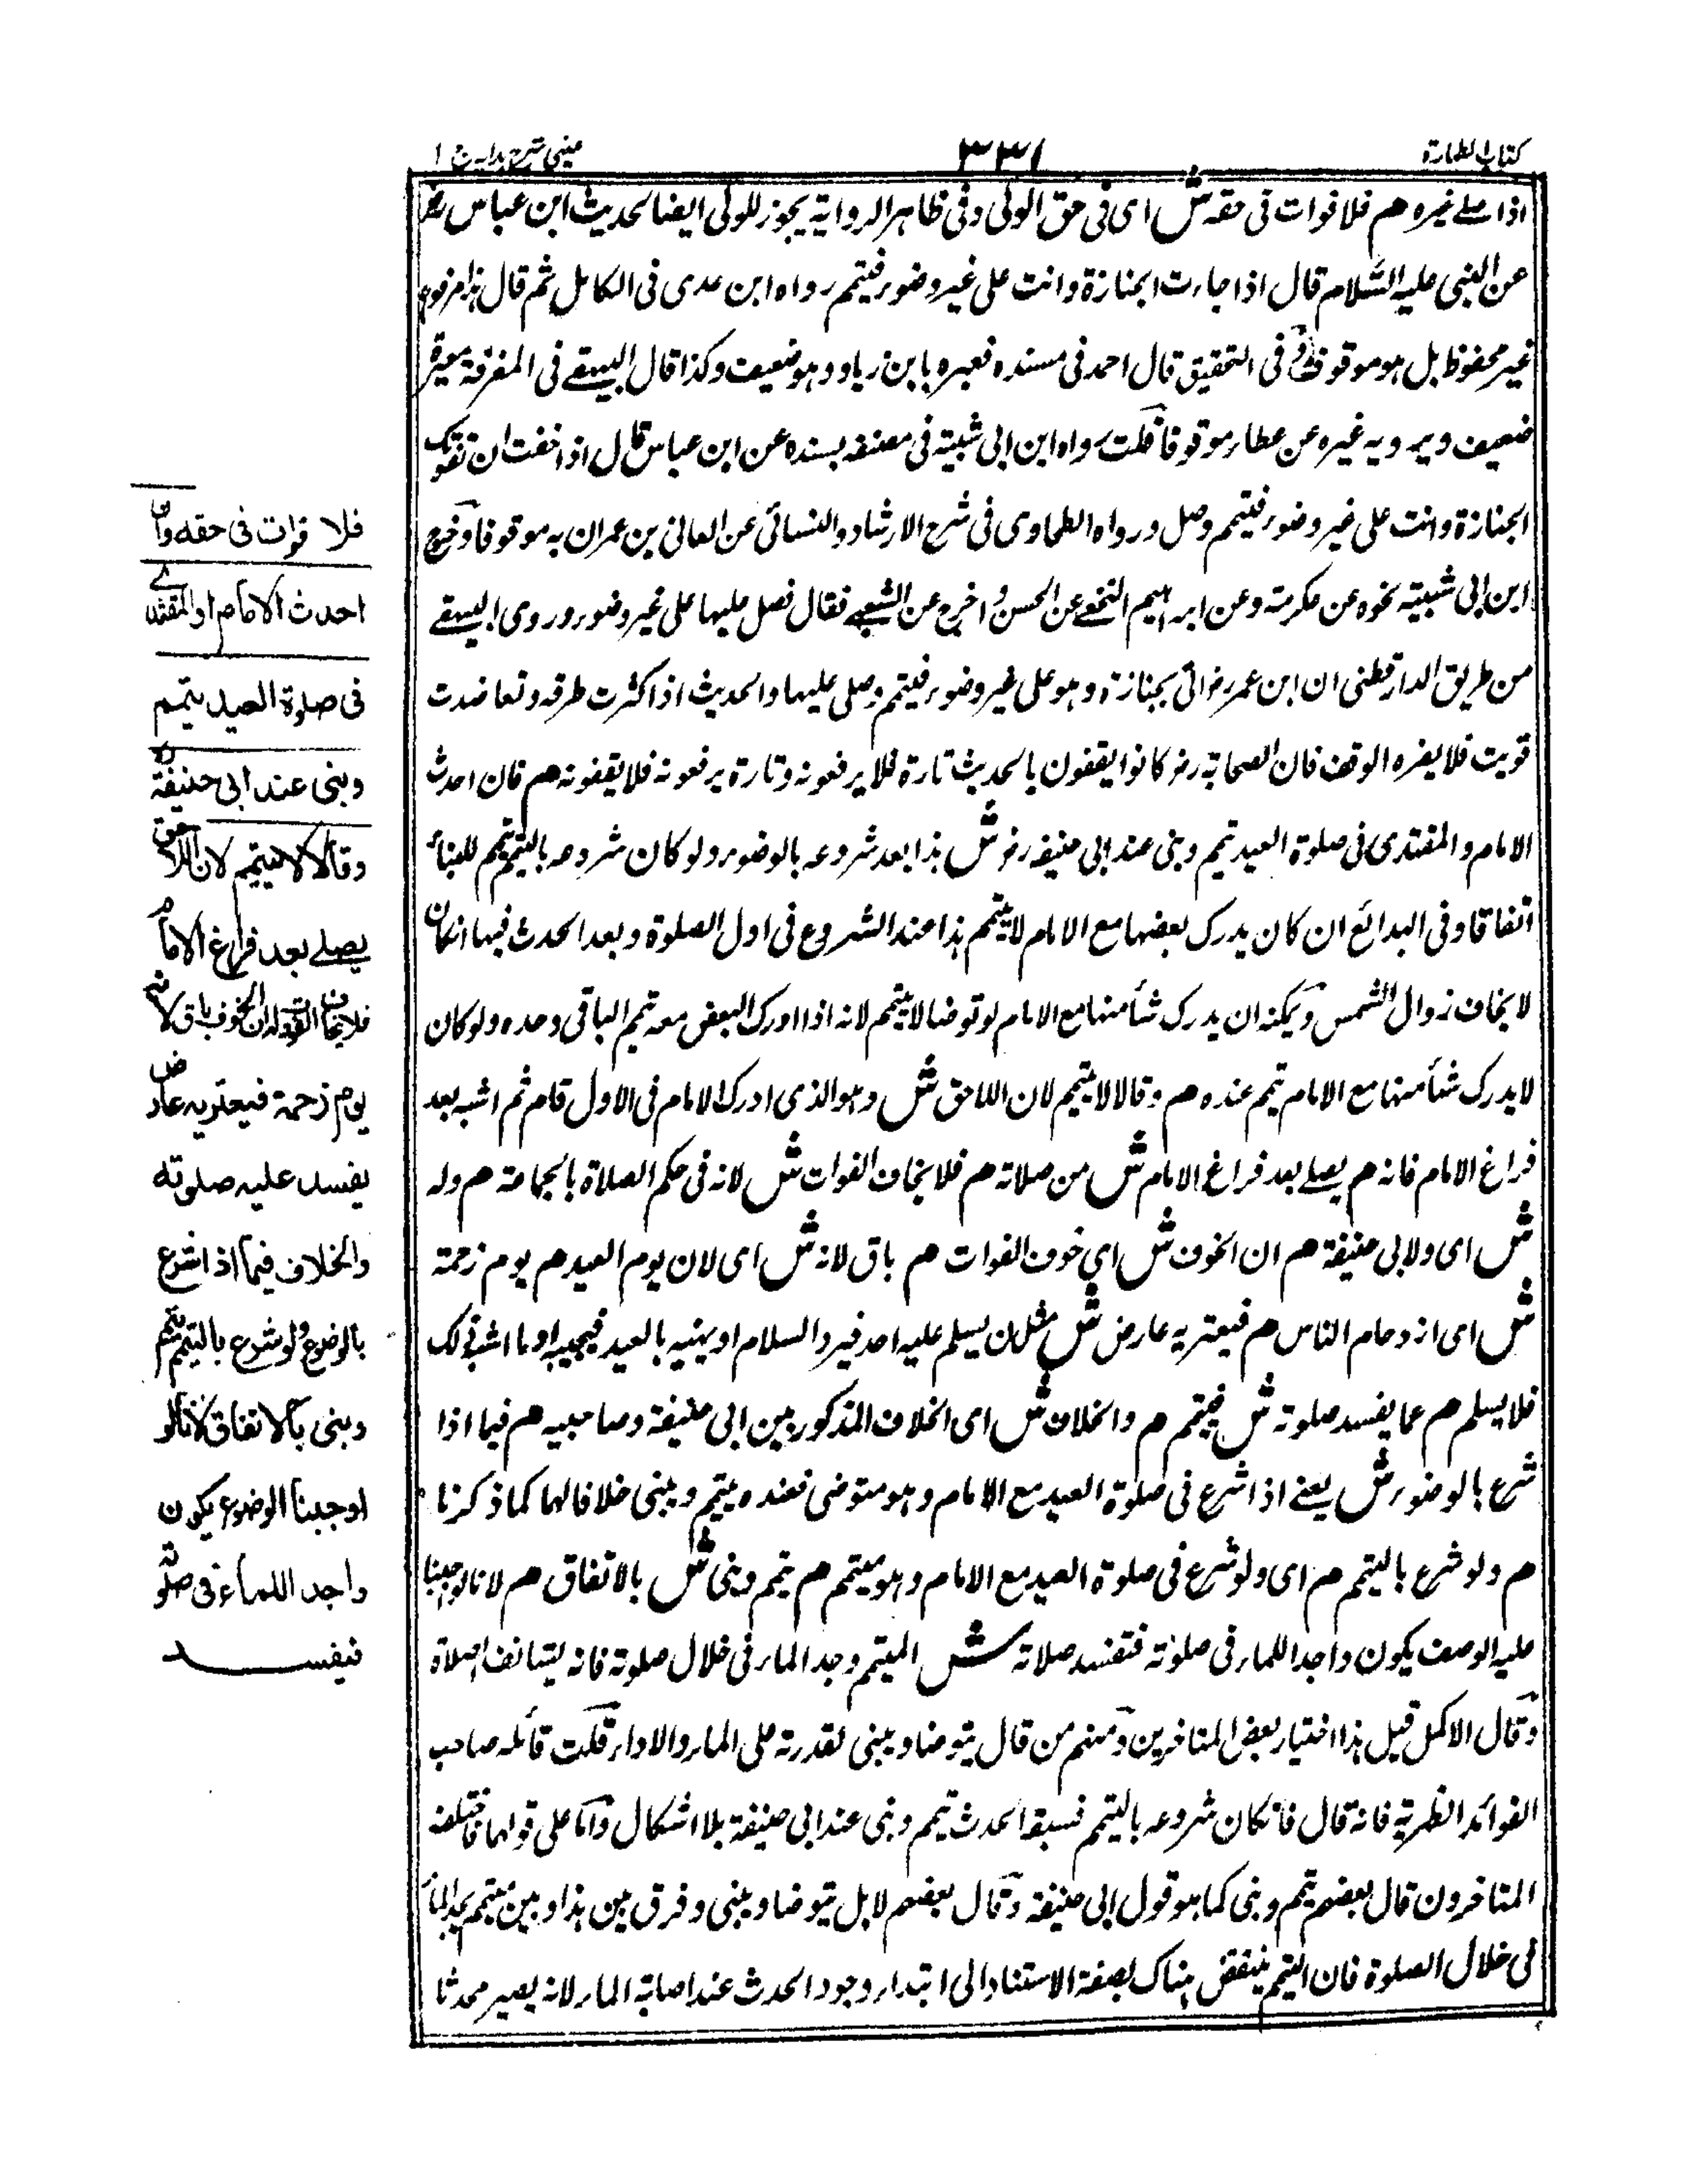 كتاب الطهارة
٣٣١
عینی شرح ہدایہ ج ١
اذا صلے غیره هم فلا فوات فی حقہ ش ای فی حق الولی وفی ظاهر الروایة یجوز للولی ایضا لحدیث ابن عباس رض
عن النبی علیہ السلام قال اذا جاءت الجنازة وانت علی غیر وضوء فتیمم رواه ابن عدی فی الکامل ثم قال ہذا مرفوع
غیر محفوظ بل ہو موقوف وفی التحقیق قال احمد فی مسنده فمغیره بابن زیاد وہو ضعیف وکذا قال البیہقے فی المعرفة مغیرة
ضعیف ویرویہ غیره عن عطاء موقوفا قلت رواه ابن ابی شیبة فی مصنفہ بسنده عن ابن عباس قال اذا خفت ان تفوتک
الجنازة وانت علی غیر وضوء فتیمم وصل ورواه الطحاوی فی شرح الارشاد والنسائی عن المعافی بن عمران بہ موقوفا وخرج
ابن ابی شیبة نحوه عن عکرمة وعن ابراہیم النخعے عن الحسن واخرج عن الشعبے فقال فصل علیہا علی غیر وضوء وروی البیہقے
من طریق الدارقطنی ان ابن عمر رض اتی بجنازة وہو علی غیر وضوء فتیمم وصلی علیہا والحدیث اذا کثرت طرقہ وتعاضدت
قویت فلا یضره الوقف فان الصحابة رض کانوا یقفون بالحدیث تارة فلا یرفعونہ وتارة یرفعونہ فلا یقفونہ هم فان احدث
الامام والمقتدی فی صلوة العید تیمم وبنی عند ابی حنیفة رض ش ہذا بعد شروعہ بالوضوء ولو کان شروعہ بالتیمم تیمم للبناء
اتفاقا وفی البدائع ان کان یدرک بعضہا مع الامام لا یتیمم ہذا عند الشروع فی اول الصلوة وبعد الحدث فیہا انکان
لا یخاف زوال الشمس ویمکنہ ان یدرک شأ منہا مع الامام لو توضا لا یتیمم لانہ اذا ادرک البعض معہ تیمم الباقی وحده ولو کان
لا یدرک شأ منہا مع الامام تیمم عنده هم وقالا لا یتیمم لان اللاحق ش وہو الذی ادرک الامام فی الاول قام ثم اشبہ بعد
فراغ الامام فانہ هم یصلے بعد فراغ الامام ش من صلاتہ هم فلا یخاف الفوات ش لانہ فی حکم الصلاة بالجماعة هم ولہ
ش ای ولابی حنیفة هم ان الخوف ش ای خوف الفوات هم باق لانہ ش ای لان یوم العید هم یوم زحمة
ش ای ازدحام الناس هم فیعتریہ عارض ش مثل ان یسلم علیہ احد فیرد السلام او یہنیہ بالعید فیجیبہ او ما اشبہ ذلک
فلا یسلم هم عما یفسد صلوتہ ش فیتیمم هم والخلاف ش ای الخلاف المذکور بین ابی حنیفة وصاحبیہ هم فیما اذا
شرع بالوضوء ش یعنے اذا شرع فی صلوة العید مع الامام وہو متوضی فعنده یتیمم ویبنی خلافا لہما کما ذکرنا
هم ولو شرع بالتیمم هم ای ولو شرع فی صلوة العید مع الامام وہو متیمم هم تیمم وبنی ش بالاتفاق هم لانا لو اوجبنا
علیہ الوصف یکون واجدا للماء فی صلوتہ فتفسد صلاتہ ش المتیمم وجد الماء فی خلال صلوتہ فانہ یستانف الصلاة
وقال الاکمل قیل ہذا اختیار بعض المتاخرین ومنہم من قال یتوضا ویبنی لقدرتہ علی الماء والاداء قلت قائلہ صاحب
الفوائد الظہریة فانہ قال فانکان شروعہ بالتیمم فسبقہ الحدث تیمم وبنی عند ابی حنیفة بلا اشکال واما علی قولہما فاختلف
المتاخرون قال بعضہم تیمم وبنی کما ہو قول ابی حنیفة وقال بعضہم لا بل یتوضا ویبنی وفرق بین ہذا وبین متیمم یجد الماء
فی خلال الصلوة فان التیمم ینتقض ہناک بصفة الاستناد الی ابتداء وجود الحدث عند اصابة الماء لانہ یصیر محدثا
فلا فوات فی حقہ وان
احدث الامام او المقتدے
فی صلوة العید یتیمم
وبنی عند ابی حنیفة رح
وقالا لا یتیمم لان اللاحق
یصلے بعد فراغ الامام
فلا یخاف الفوت ولہ ان الخوف باق لانہ
یوم زحمة فیعتریہ عارض
یفسد علیہ صلوتہ
والخلاف فیما اذا شرع
بالوضوء ولو شرع بالتیمم تیمم
وبنی بالاتفاق لانا لو
اوجبنا الوضوء یکون
واجد اللماء فی صلوتہ
فیفسد